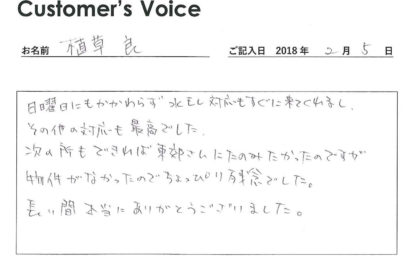 Customer's Voice
お名前 植草 良 ご記入日 2018年 2月 5日
日曜日にもかかわらず 水モレ対応もすぐに来てくれるし、
その他の対応も最高でした。
次の所もできれば東郊さんにたのみたかったのですが
物件がなかったのでちょっぴり残念でした。
長い間 本当にありがとうございました。